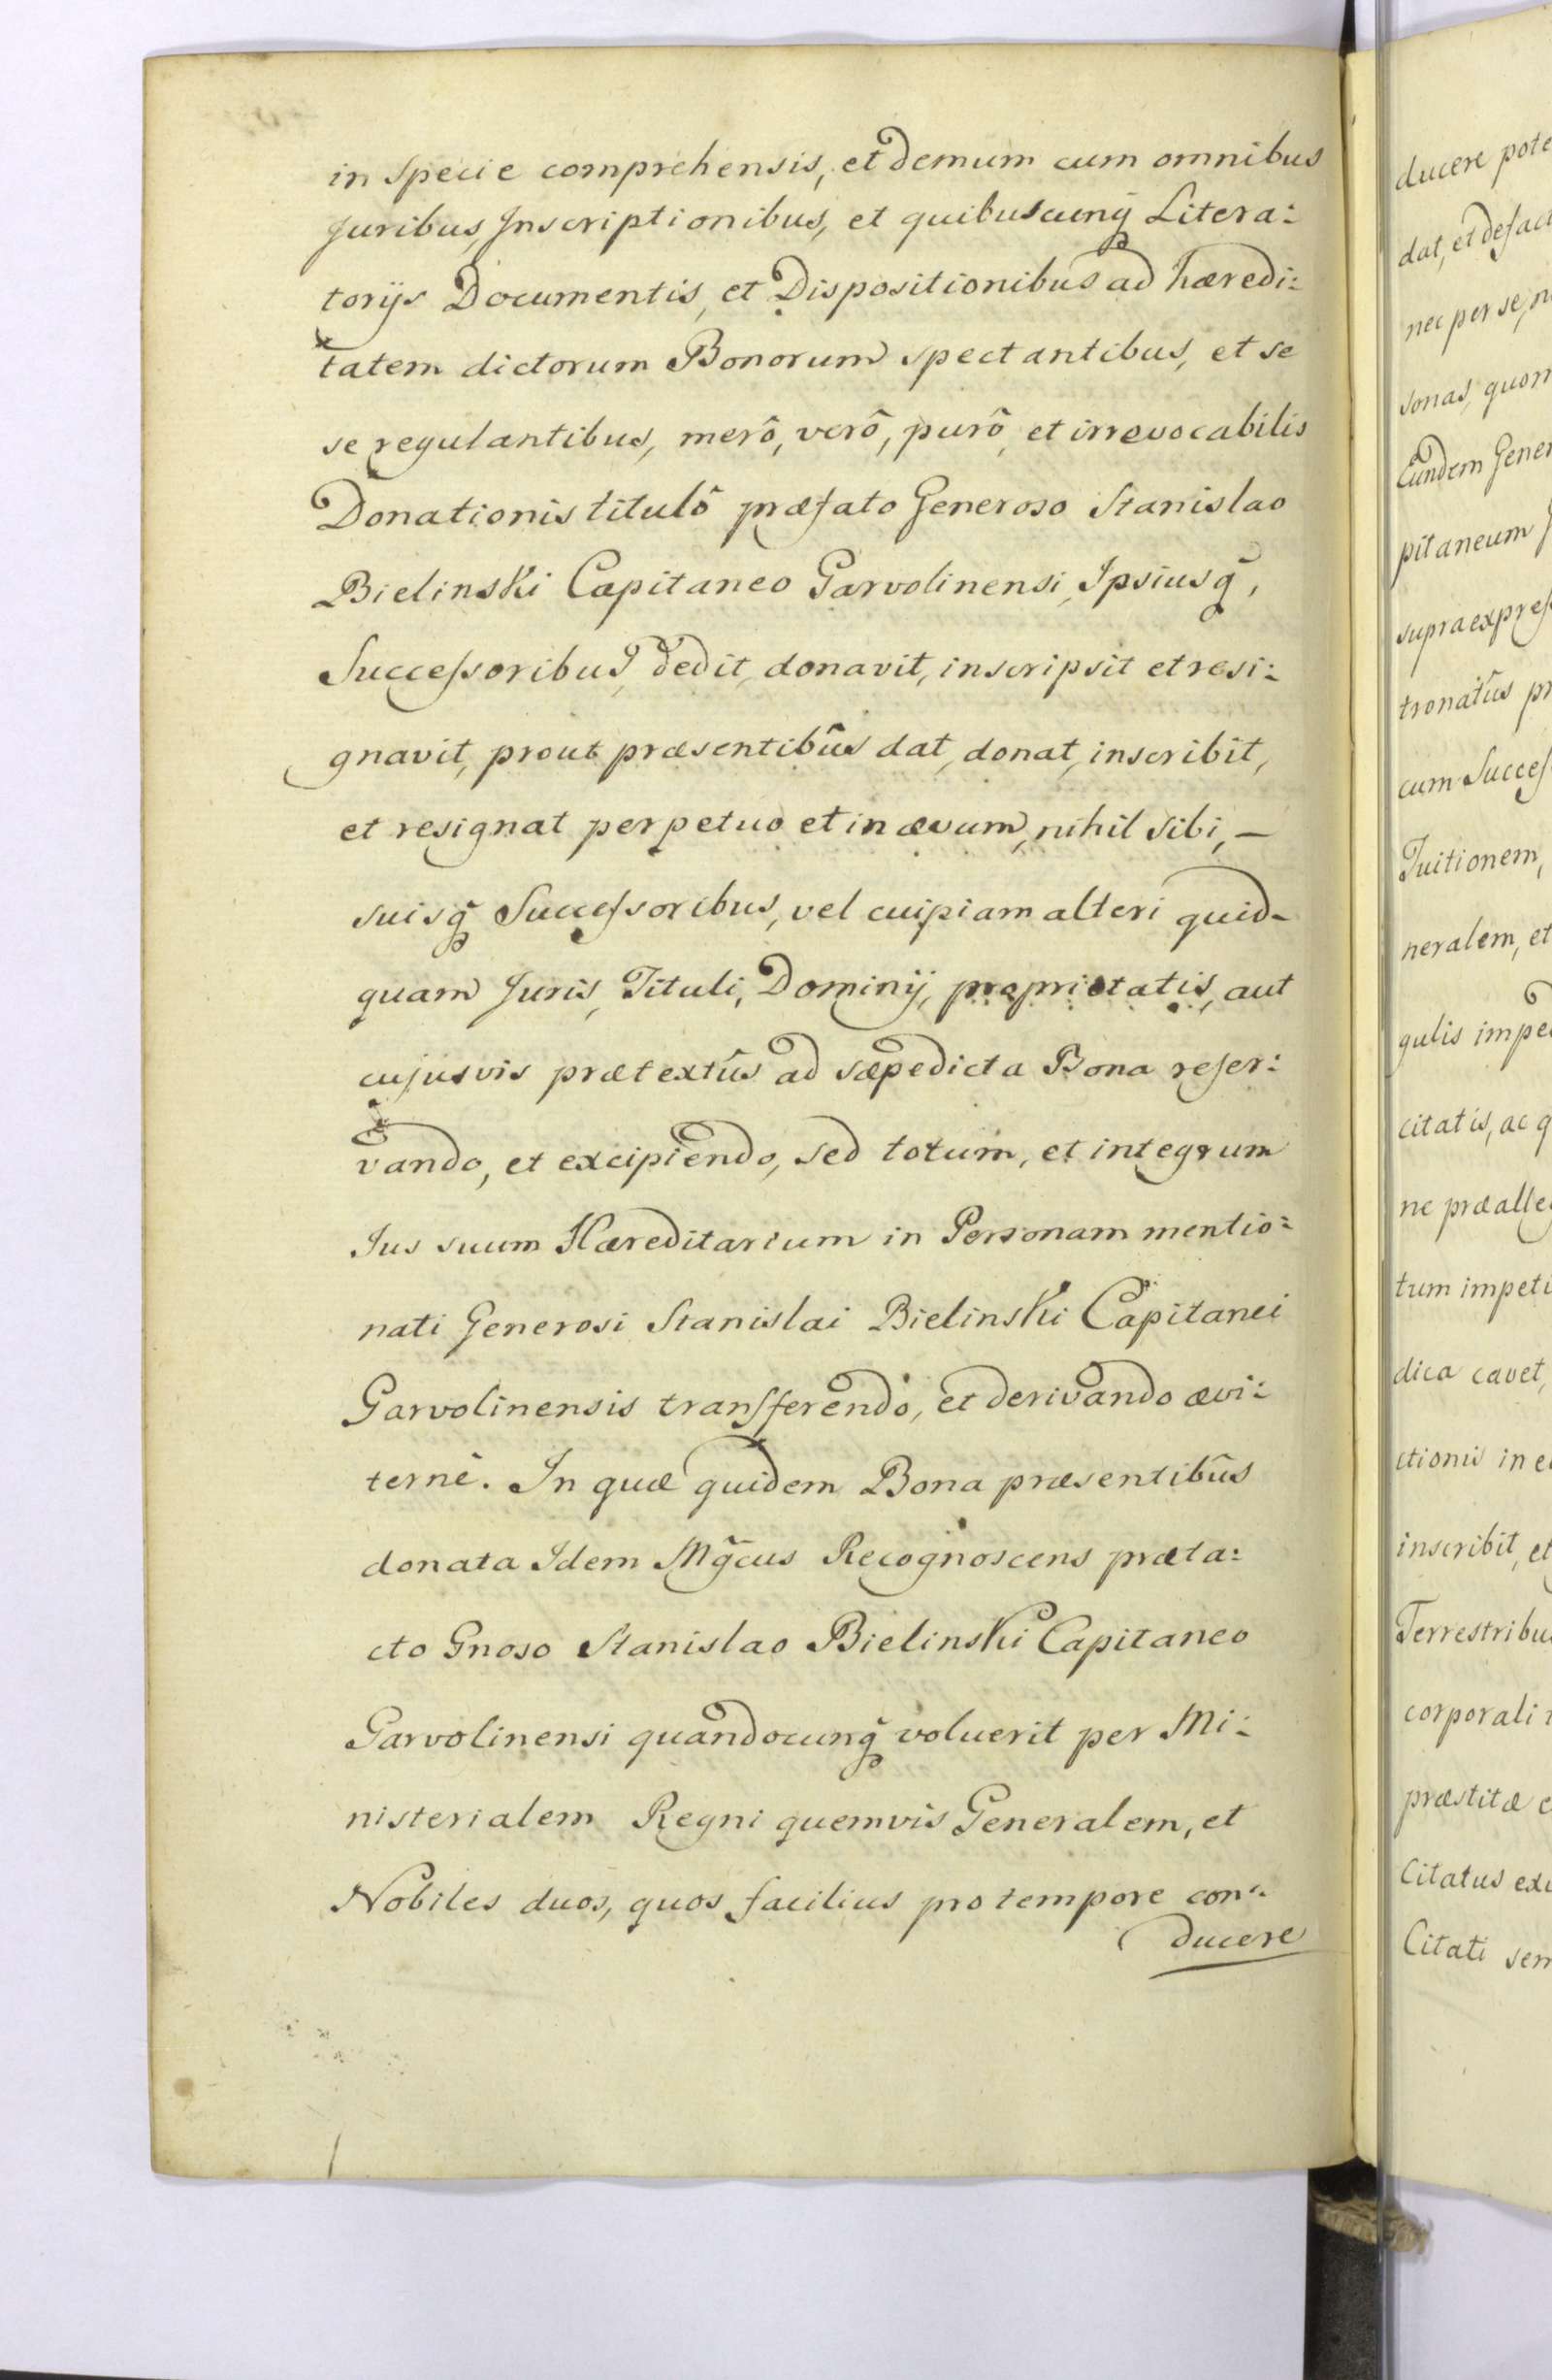 in specie comprehensis, et demum cum omnibus
Juribus, Inscriptionibus, et quibuscunq̃ Litera:
torijs Documentis, et Dispositionibus ad hæredi:
tatem dictorum Bonorum spectantibus, et se
se regulantibus, merô, verô, purô, et irrevocabilis
Donationis titulô præfato Generoso Stanislao
Bielinski Capitaneo Garvolinensi, Ipsiusq̃,
Successoribus, dedit, donavit, inscripsit et resi:
gnavit, prout præsentibûs dat, donat, inscribit,
et resignat perpetuo et in ævum, nihil sibi, –
suisq̃ Successoribus, vel cuipiam alteri quid-
quam Juris, Tituli, Dominij, proprietatis, aut
cujusvis prætextûs ad sæpedicta Bona reser:
vando, et excipiendo, sed totum, et integrum
Jus suum Hæreditarium in Personam mentio:
nati Generosi Stanislai Bielinski Capitanei
Garvolinensis transferendo, et derivando ævi:
ternè. In quæ quidem Bona præsentibûs
donata Idem Mg̃cus Recognoscens præta:
cto Gnoso Stanislao Bielinski Capitaneo
Garvolinensi quandocunq̃ voluerit per Mi:
nisterialem Regni quemvis Generalem, et
Nobiles duos, quos facilius pro tempore con:
ducere
ducere pote
dat, et defact
nec per se, n
sonas, quom
Eundem Gener
pitaneum
supraexpress
tronatûs pr
cum Success
Tuitionem,
neralem, et
gulis impe
citatis, ac q
ne præalle
tum impeti
dica cavet,
ctionis in e
inscribit, et
Terrestribus
corporali
præstitæ e
Citatus ex
Citati sem